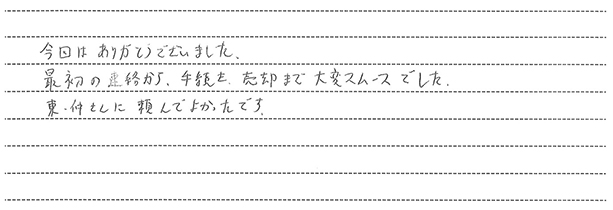 今回は ありがとうございました、
最初の連絡から、手続き、売却まで 大変スムースでした.
東・付さんに 頼んでよかったです.